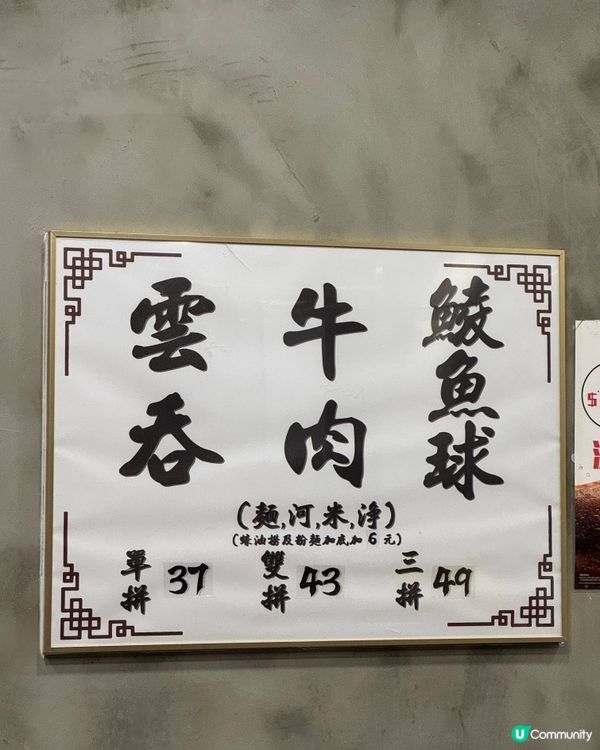 雲吞
牛肉
鯪魚球
(麵,河,米,淨)
(蠔油撈及粉麵加底加 6 元)
單拼 37
雙拼 43
三拼 49
$
U Community